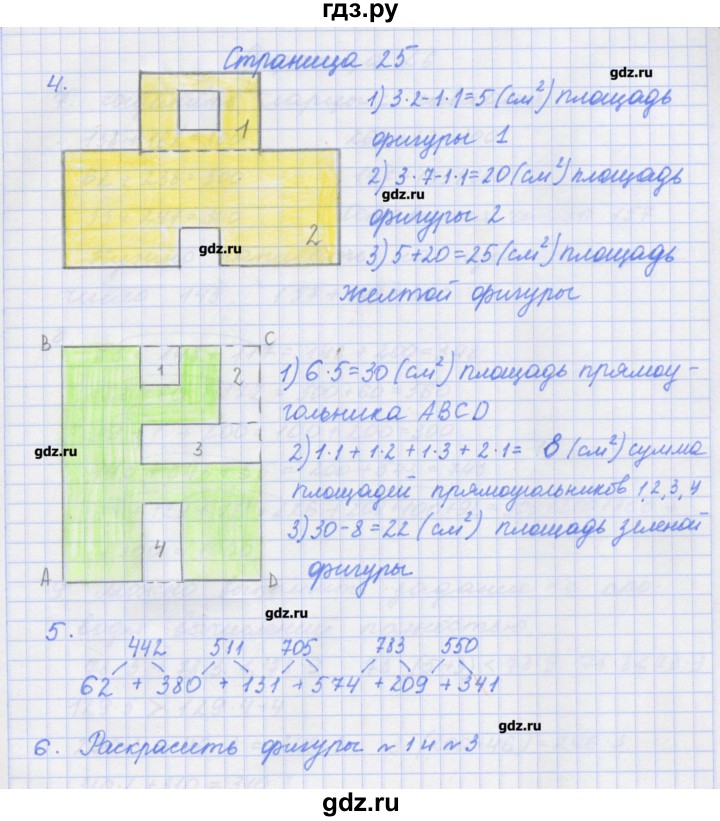 гдз.ру
Страница 25
gdz.ru
4.
1
2
gdz.ru
1) 3·2-1·1=5(см²) площадь
фигуры 1
2) 3·7-1·1=20(см²) площадь
gdz.ru
фигуры 2
3) 5+20=25(см²) площадь
желтой фигуры
B
C
1
2
3
4
A
D
gdz.ru
1) 6·5=30(см²) площадь прямоу-
гольника ABCD
2) 1·1+1·2+1·3+2·1= 8(см²) сумма
площадей прямоугольников 1,2,3,4
3) 30-8=22(см²) площадь зеленой
фигуры
gdz.ru
5.
442 511 705 783 550
62 + 380 + 131 + 574 + 209 + 341
gdz.ru
6. Раскрасить фигуры №1 и №3
gdz.ru